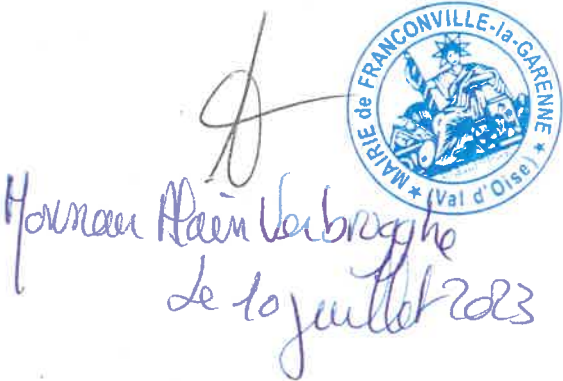 MAIRIE de FRANCONVILLE-la-GARENNE
(Val d'Oise)
Monsieur Alain Verbrugghe
Le 10 juillet 2023